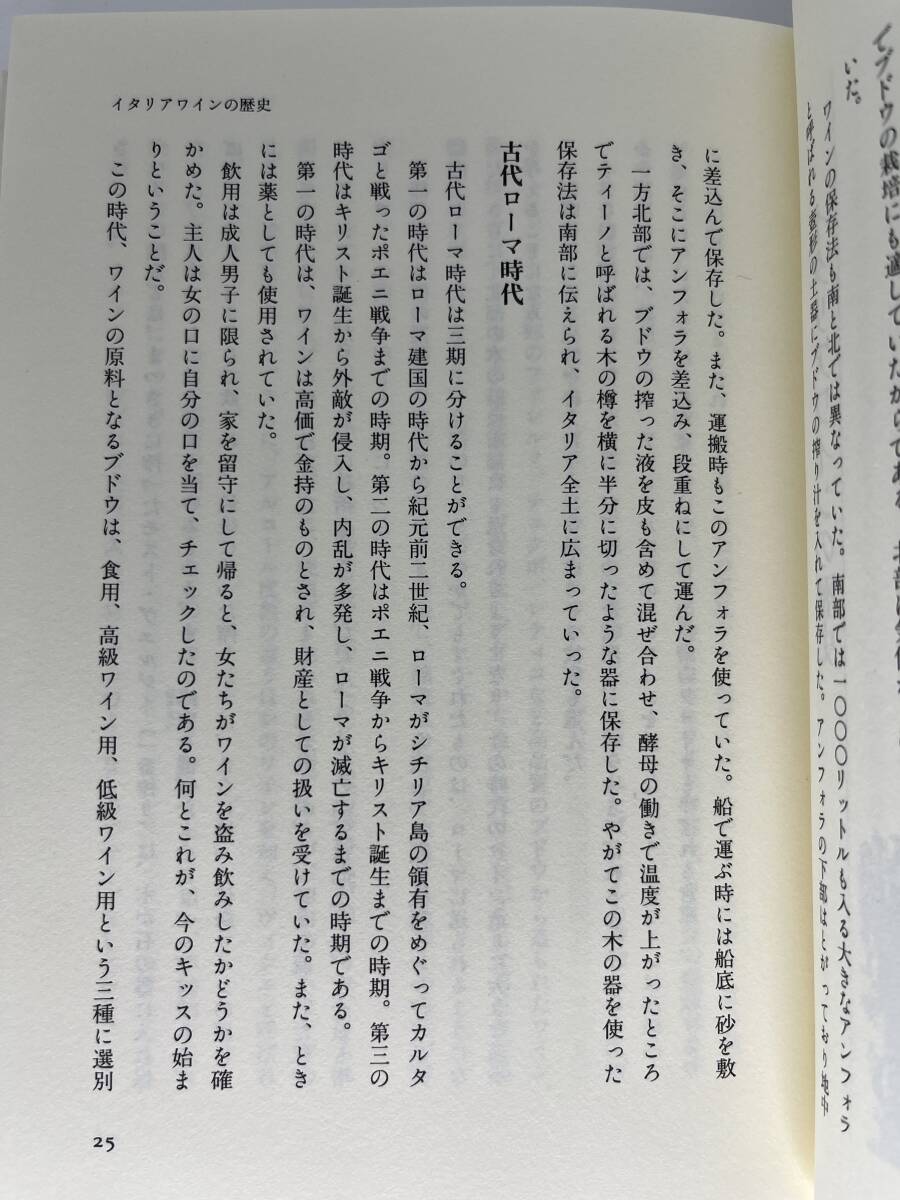 てブドウの栽培にも適していたからである。北部は
いた。
ワインの保存法も南と北では異なっていた。南部では一〇〇〇リットルも入る大きなアンフォラ
と呼ばれる壺形の土器にブドウの搾り汁を入れて保存した。アンフォラの下部はとがっており地中
イタリアワインの歴史
に差込んで保存した。また、運搬時もこのアンフォラを使っていた。船で運ぶ時には船底に砂を敷
き、そこにアンフォラを差込み、段重ねにして運んだ。
一方北部では、ブドウの搾った液を皮も含めて混ぜ合わせ、酵母の働きで温度が上がったところ
でティーノと呼ばれる木の樽を横に半分に切ったような器に保存した。やがてこの木の器を使った
保存法は南部に伝えられ、イタリア全土に広まっていった。
古代ローマ時代
古代ローマ時代は三期に分けることができる。
第一の時代はローマ建国の時代から紀元前二世紀、ローマがシチリア島の領有をめぐってカルタ
ゴと戦ったポエニ戦争までの時期。第二の時代はポエニ戦争からキリスト誕生までの時期。第三の
時代はキリスト誕生から外敵が侵入し、内乱が多発し、ローマが滅亡するまでの時期である。
第一の時代は、ワインは高価で金持のものとされ、財産としての扱いを受けていた。また、とき
には薬としても使用されていた。
飲用は成人男子に限られ、家を留守にして帰ると、女たちがワインを盗み飲みしたかどうかを確
かめた。主人は女の口に自分の口を当て、チェックしたのである。何とこれが、今のキッスの始ま
りということだ。
この時代、ワインの原料となるブドウは、食用、高級ワイン用、低級ワイン用という三種に選別
25